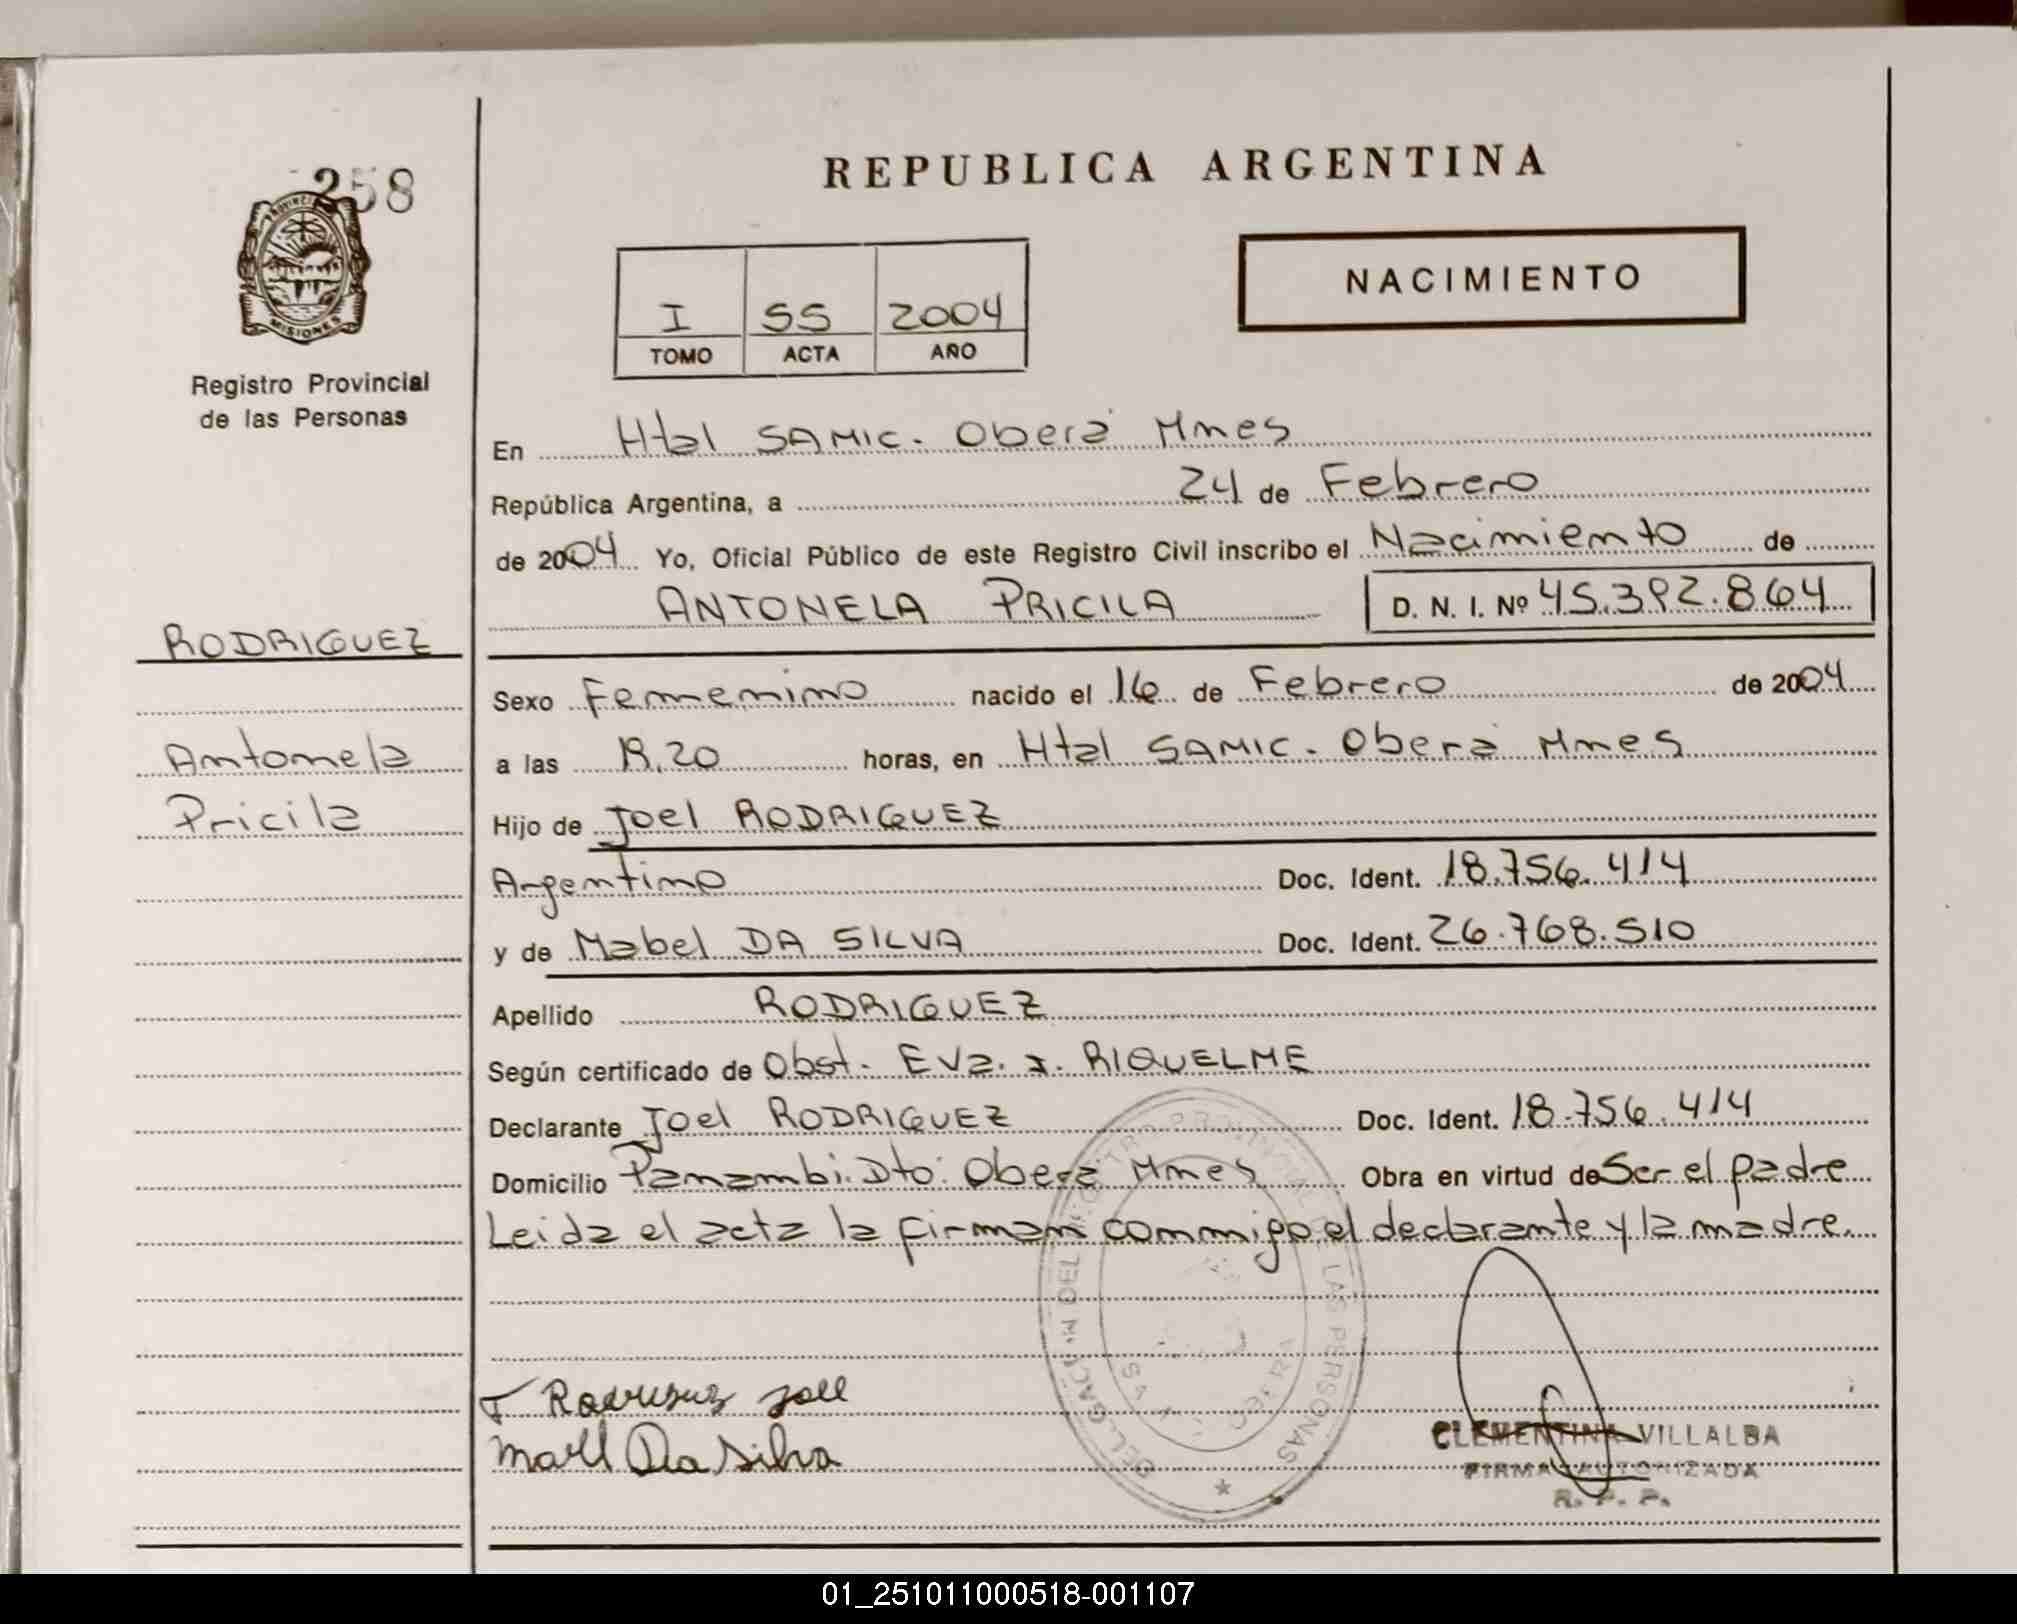 258
REPUBLICA ARGENTINA
NACIMIENTO
I 55 2004
TOMO ACTA AÑO
Registro Provincial
de las Personas
En Htal SAMIC. Oberá Mnes
República Argentina, a 24 de Febrero
de 2004 Yo, Oficial Público de este Registro Civil inscribo el Nacimiento de
ANTONELA PRICILA D. N. I. Nº 45.392.864
RODRIGUEZ
Sexo Femenino nacido el 16 de Febrero de 2004
Antonela
a las 19.20 horas, en Htal SAMIC. Oberá Mnes
Pricila
Hijo de Joel RODRIGUEZ
Argentino Doc. Ident. 18.756.414
y de Mabel DA SILVA Doc. Ident. 26.768.510
Apellido RODRIGUEZ
Según certificado de Obst. Eva. I. RIQUELME
Declarante Joel RODRIGUEZ Doc. Ident. 18.756.414
Domicilio Panambi. Dto. Oberá Mnes Obra en virtud de Ser el padre
Leida el acta la firman conmigo el declarante y la madre.
Rodriguez Joel
Da Silva
CLEMENTINA VILLALBA
FIRMA AUTORIZADA
R. P. P.
01_251011000518-001107